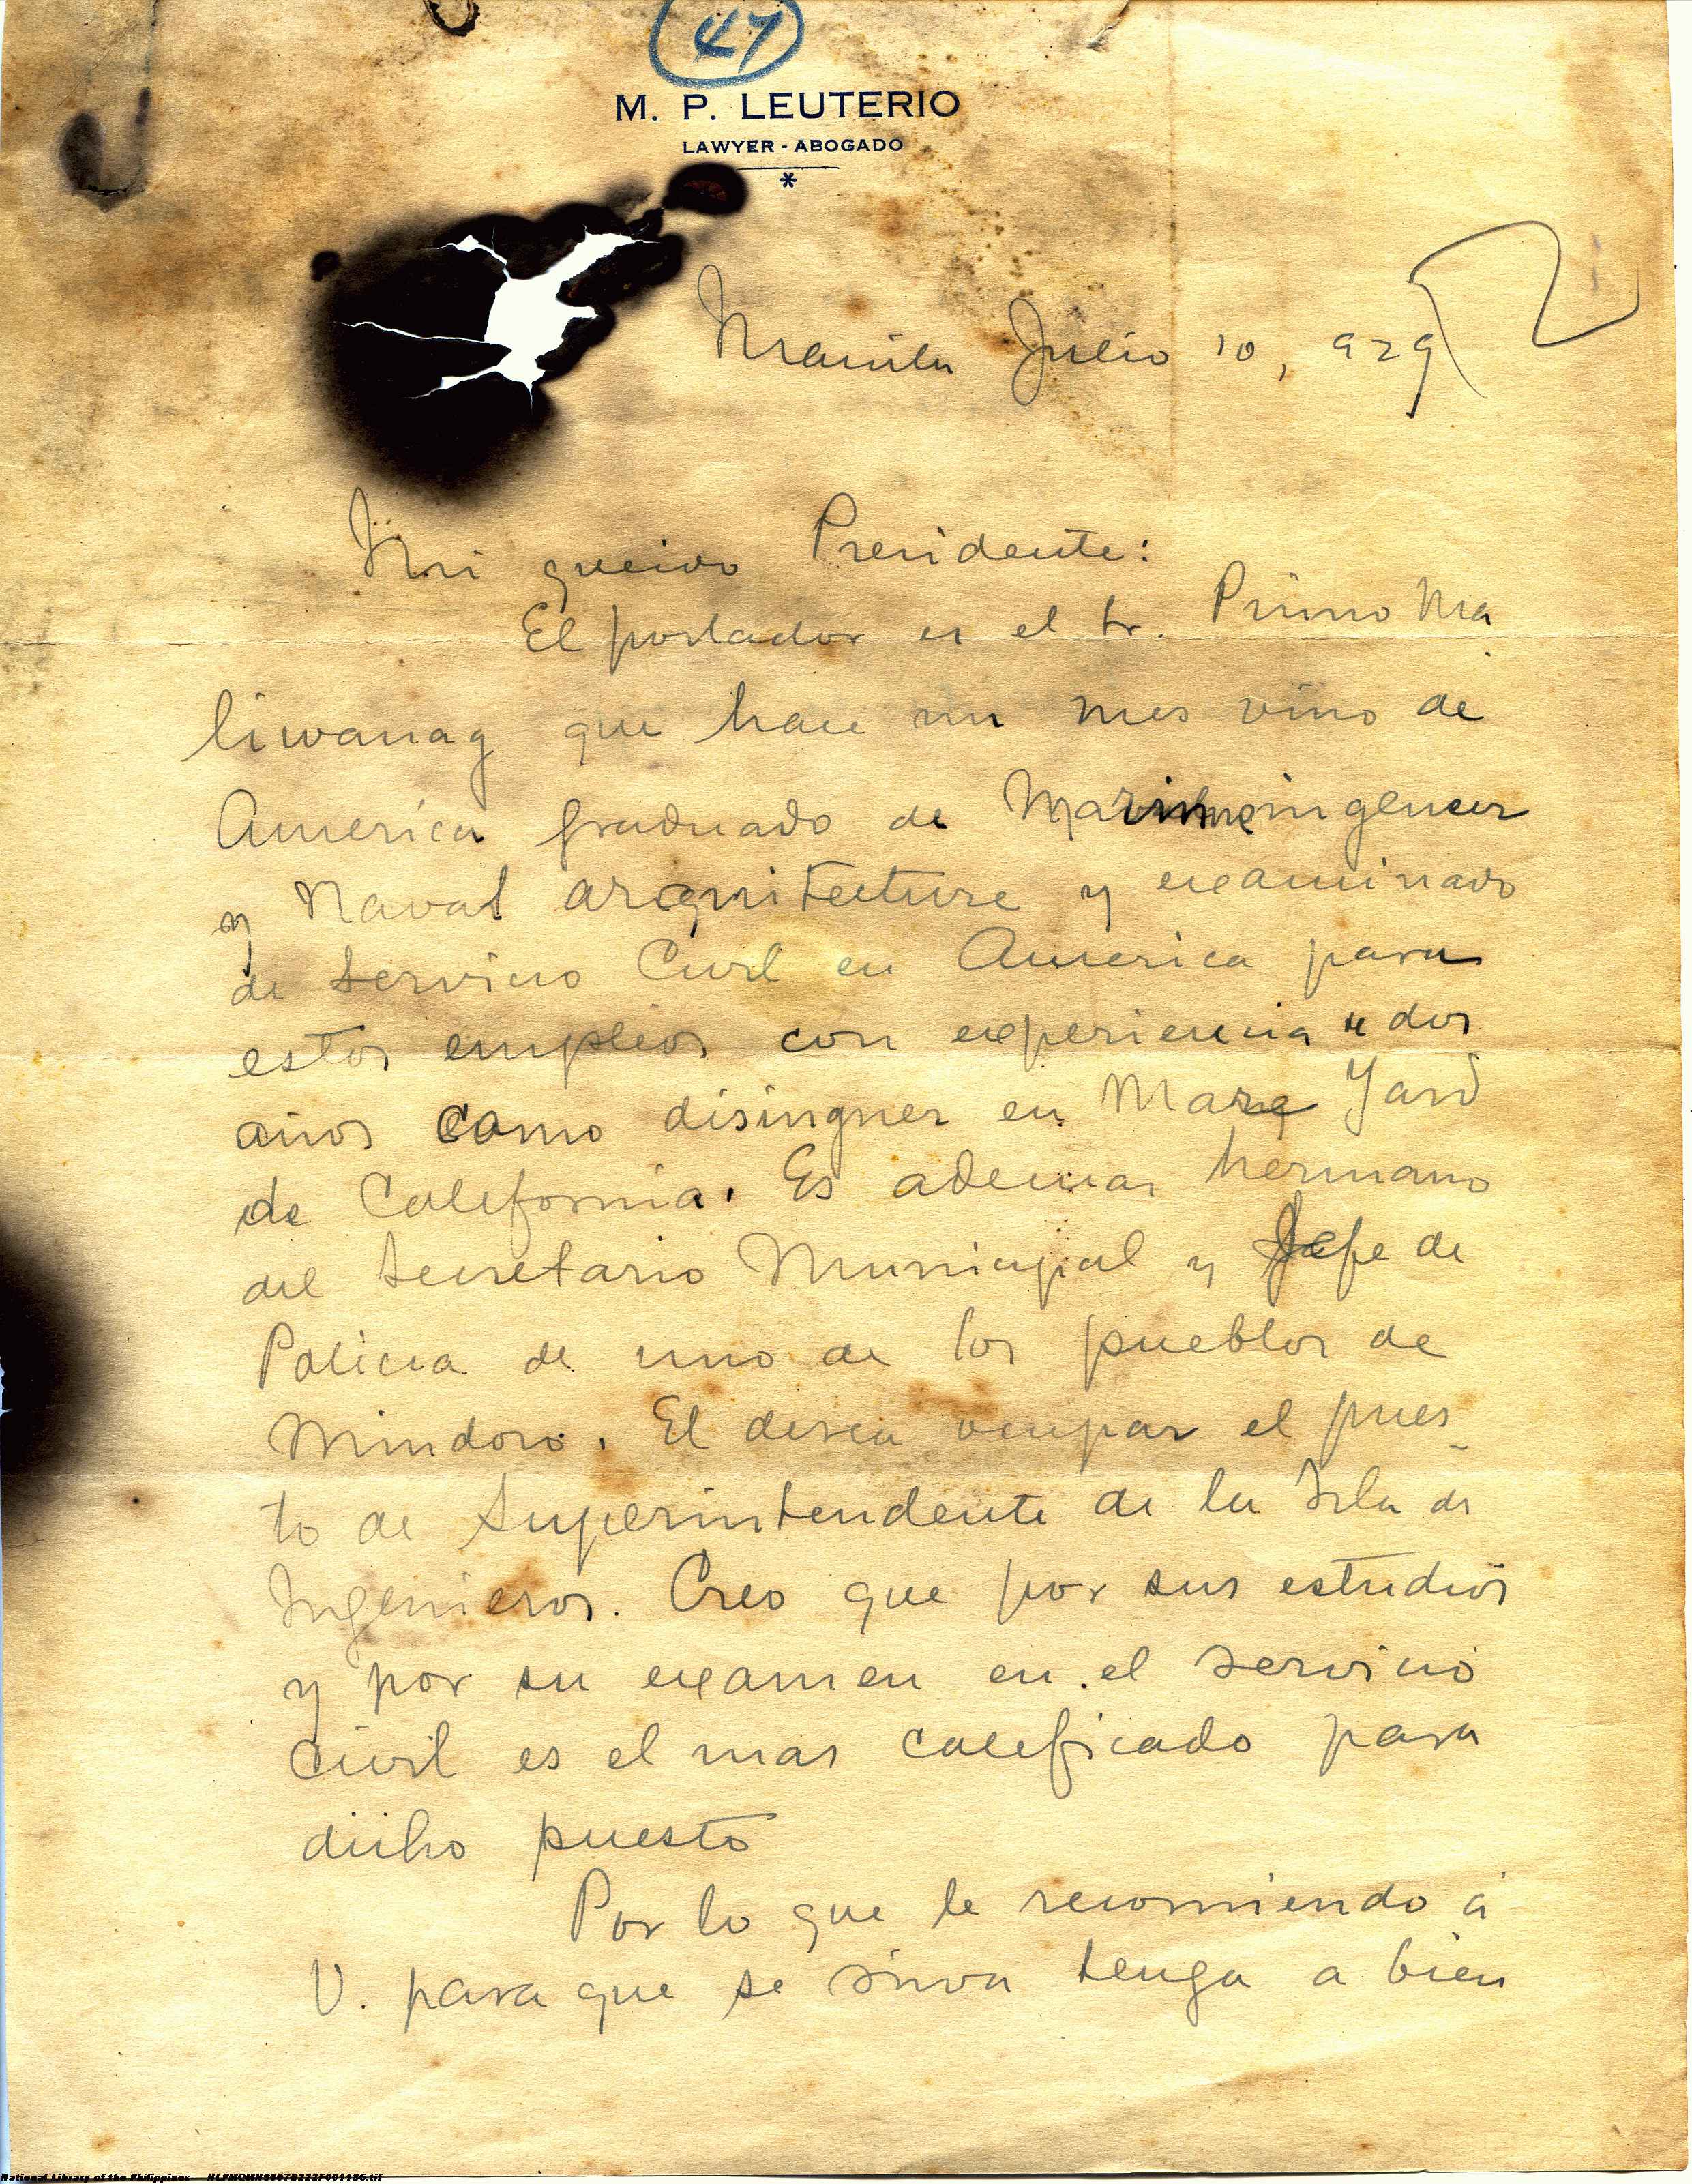 47
M. P. LEUTERIO
LAWYER - ABOGADO
*
Manila Julio 10, 929
Mi queido Presidente:
El portador es el Sr. Primo Ma
liwanag que hace un mes vino de
America graduado de Marine ingeneer
y Naval arquitecture y examinado
de Servicio Civil en America para
estos empleos con experiencia de dos
años como disingner en Mare Yard
de California. Es ademas hermano
del Secretario Municipal y Jefe de
Policia de uno de los pueblos de
Mindoro. El desea ocupar el pues-
to de Superintendente de la Isla de
Ingenieros. Creo que por sus estudios
y por su examen en el servicio
civil es el mas calificado para
dicho puesto
Por lo que le recomiendo á
V. para que se sirva tenga a bien
National Library of the Philippines NLPMQMNS007B222F001186.tif